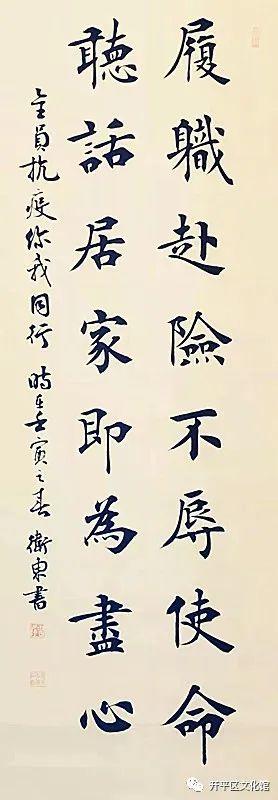 履職赴險不辱使命
聽話居家即為盡心
全員抗疫你我同行 時在壬寅之春 衛東書
开平区文化馆